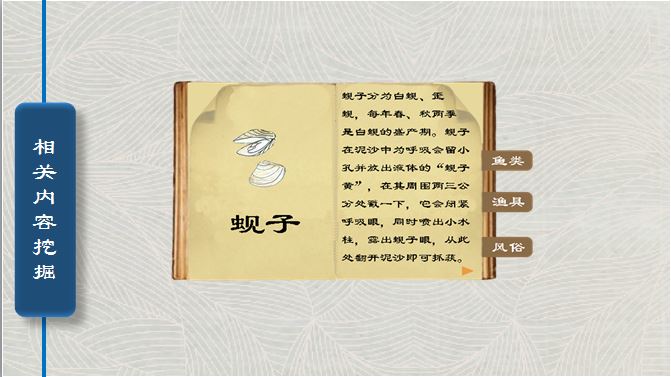 相关内容挖掘
蚬子
蚬子分为白蚬、歪
蚬，每年春、秋两季
是白蚬的盛产期。蚬子
在泥沙中为呼吸会留小
孔并放出液体的“蚬子
黄”，在其周围两三公
分处戳一下，它会闭紧
呼吸眼，同时喷出小水
柱，露出蚬子眼，从此
处翻开泥沙即可抓获。
鱼类
渔具
风俗